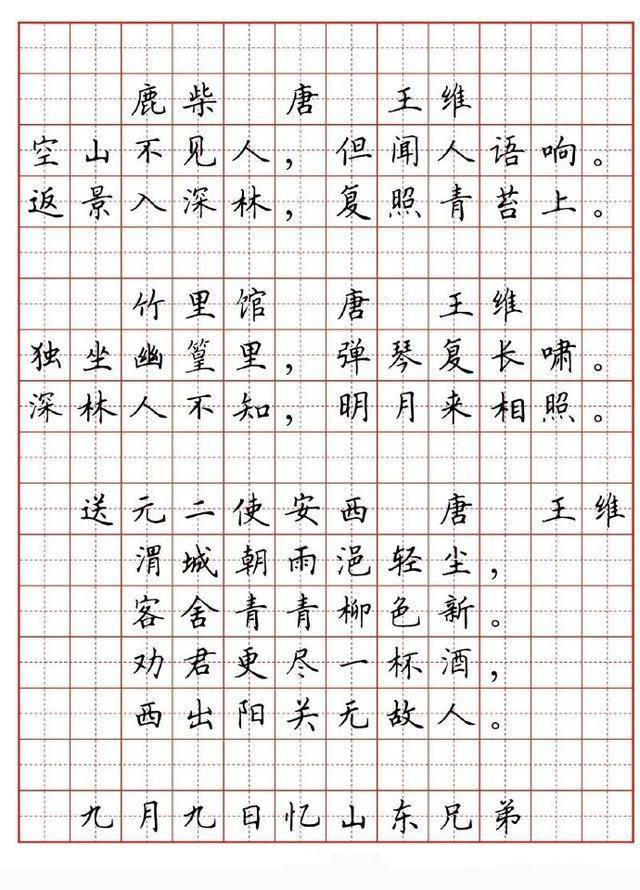 鹿柴 唐 王维
空山不见人，但闻人语响。
返景入深林，复照青苔上。
竹里馆 唐 王维
独坐幽篁里，弹琴复长啸。
深林人不知，明月来相照。
送元二使安西 唐 王维
渭城朝雨浥轻尘，
客舍青青柳色新。
劝君更尽一杯酒，
西出阳关无故人。
九月九日忆山东兄弟